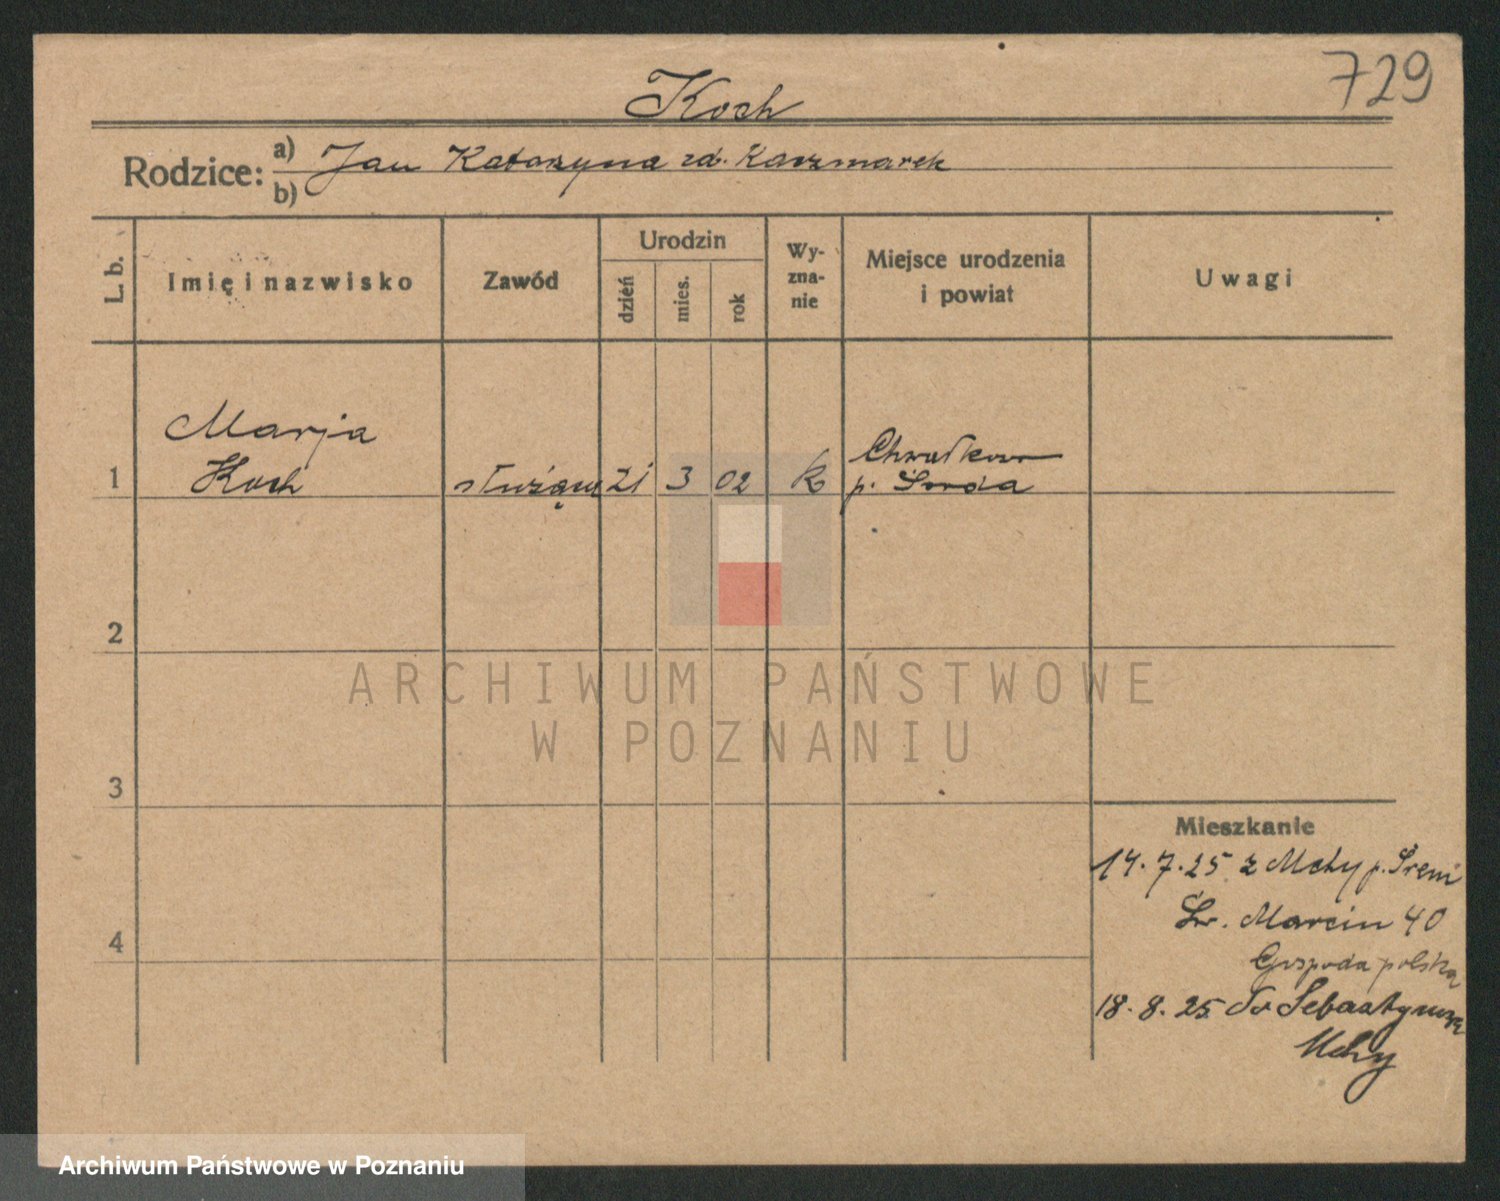 729
Koch
Rodzice: a) Jan Katarzyna zd. Kaczmarek
b)
L. b.
Imię i nazwisko
Zawód
Urodzin
dzień
mies.
rok
Wy-
zna-
nie
Miejsce urodzenia
i powiat
Uwagi
Marja
Koch
1
służąca 21 3 02 k
Chwałkowo
p. Środa
2
ARCHIWUM PAŃSTWOWE
W POZNANIU
3
4
Mieszkanie
14.7.25 z Mchy p. Śrem
Św. Marcin 40
Gospoda polska
18.8.25 do
Mchy
Archiwum Państwowe w Poznaniu